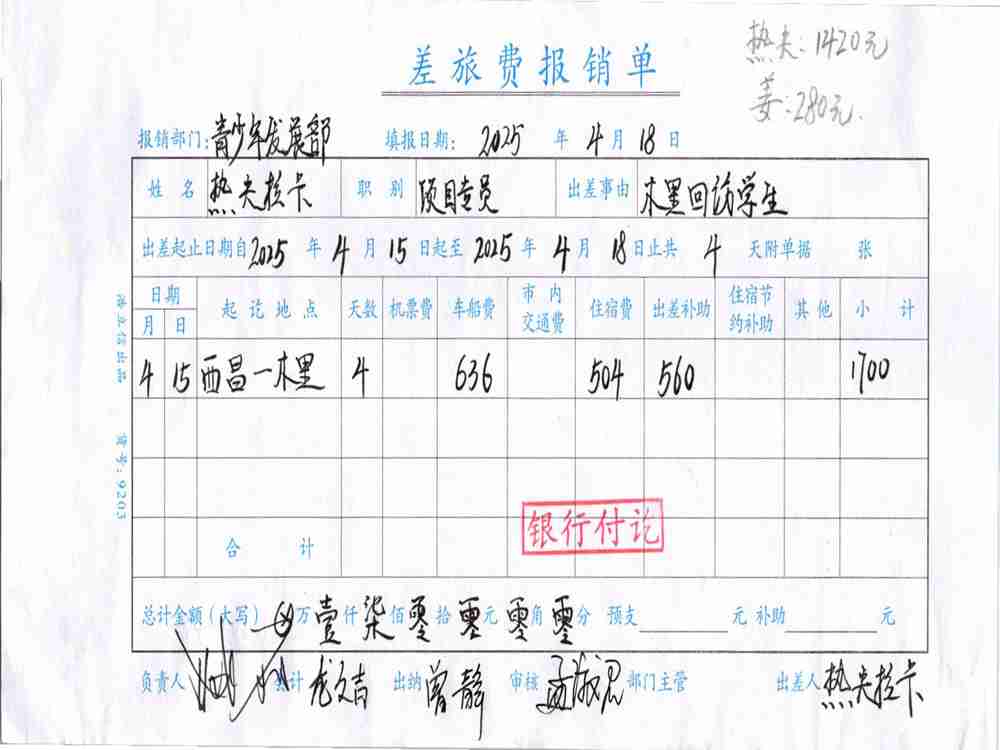 热夫:1420元
差旅费报销单
姜:280元.
报销部门:青少年发展部 填报日期: 2025 年 4 月 18 日
姓 名 热夫拉卡 职 别 项目专员 出差事由 木里回访学生
出差起止日期自2025 年 4 月 15 日起至 2025 年 4 月 18 日止共 4 天附单据 张
日期 起 讫 地 点 天数 机票费 车船费 市 内 交通费 住宿费 出差补助 住宿节 约补助 其 他 小 计
月 日
4 15 西昌一木里 4 636 504 560 1700
银行付讫
合 计
总计金额(大写) 万 壹 仟 柒 佰 零 拾 零 元 零 角 零 分 预支 元 补助 元
负责人 会计 龙文吉 出纳 曾静 审核 部门主管 出差人 热夫拉卡
货号:9203